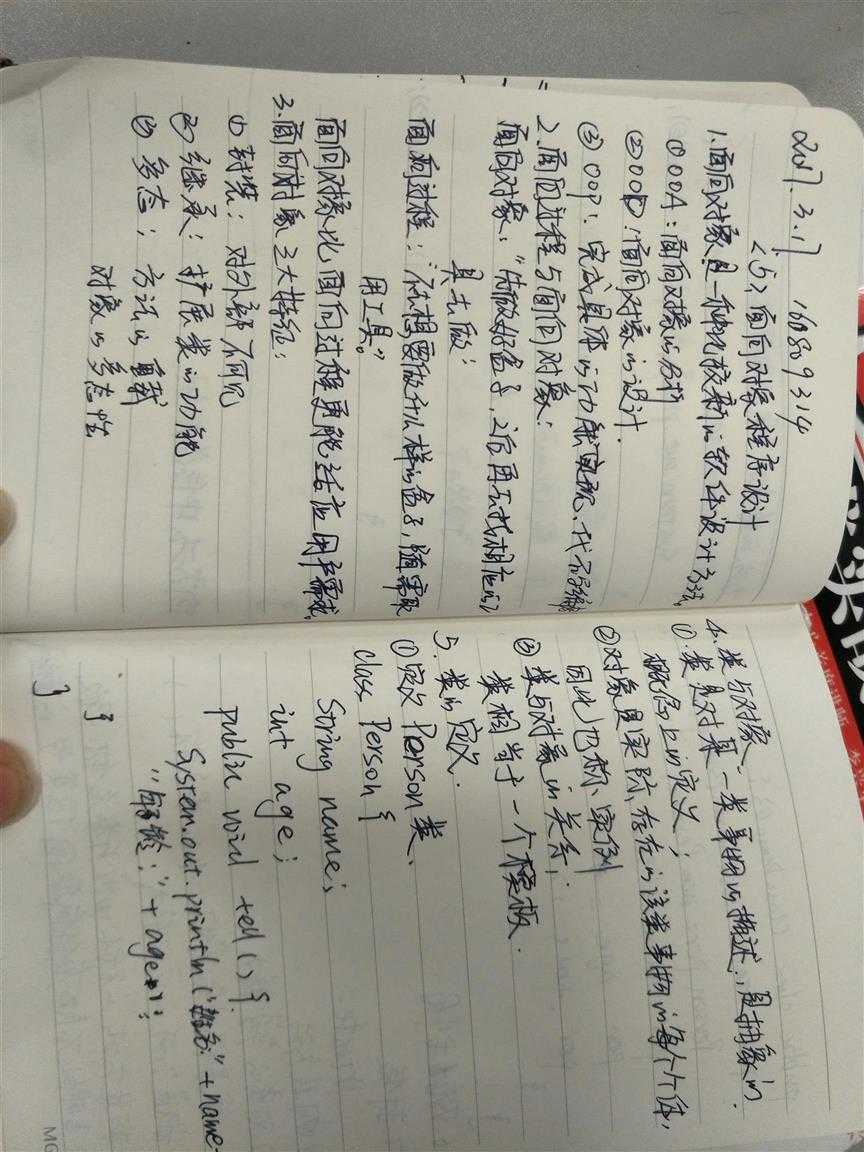 2017.3.17 168809314
<5>、面向对象程序设计
1.面向对象是一种比较新的软件设计方法。
①OOA:面向对象的分析
②OOD:面向对象的设计.
③OOP:完成具体的功能实现、代码编
2.面向过程与面向对象:
面向对象:“先做好盒子,之后再去找相应的工
具去做;
面向过程:“你想要做什么样的盒子,随需取
用工具。”
面向对象比面向过程更能适应用户需求。
3.面向对象三大特征:
①封装:对外部不可见
②继承:扩展类的功能
③多态:方法的重载
对象的多态性
4.类与对象
①.类是对某一类事物的描述,是抽象的.
概念上的定义;
②对象是实际存在的该类事物的每个个体,
因此也称、实例
③类与对象的关系:
类相当于一个模板.
5.类的定义.
①定义Person类、
class Person{
String name;
int age;
public void tell(){
System.out.println("姓名:"+name+
"年龄:"+age);
}
}
MG